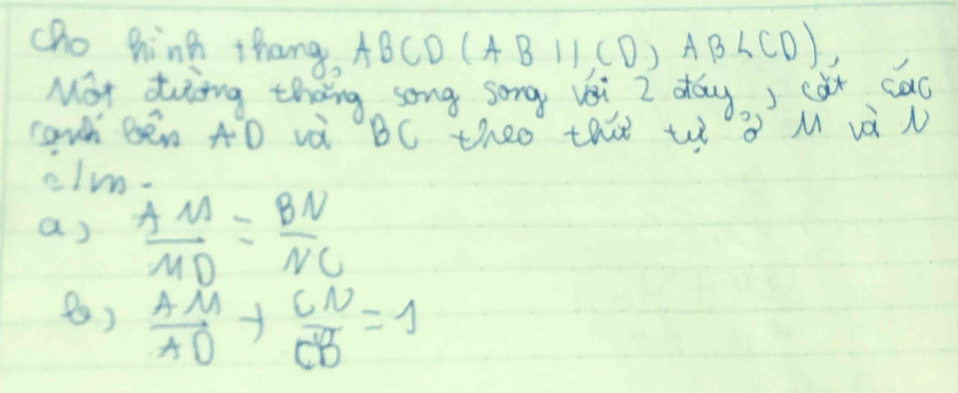 Cho hình thang ABCD (AB // CD, AB < CD).
Một đường thẳng song song với 2 đáy, cắt các
cạnh bên AD và BC theo thứ tự ở M và N
c/m.
a, AM/MD = BN/NC
b, AM/AD + CN/CB = 1